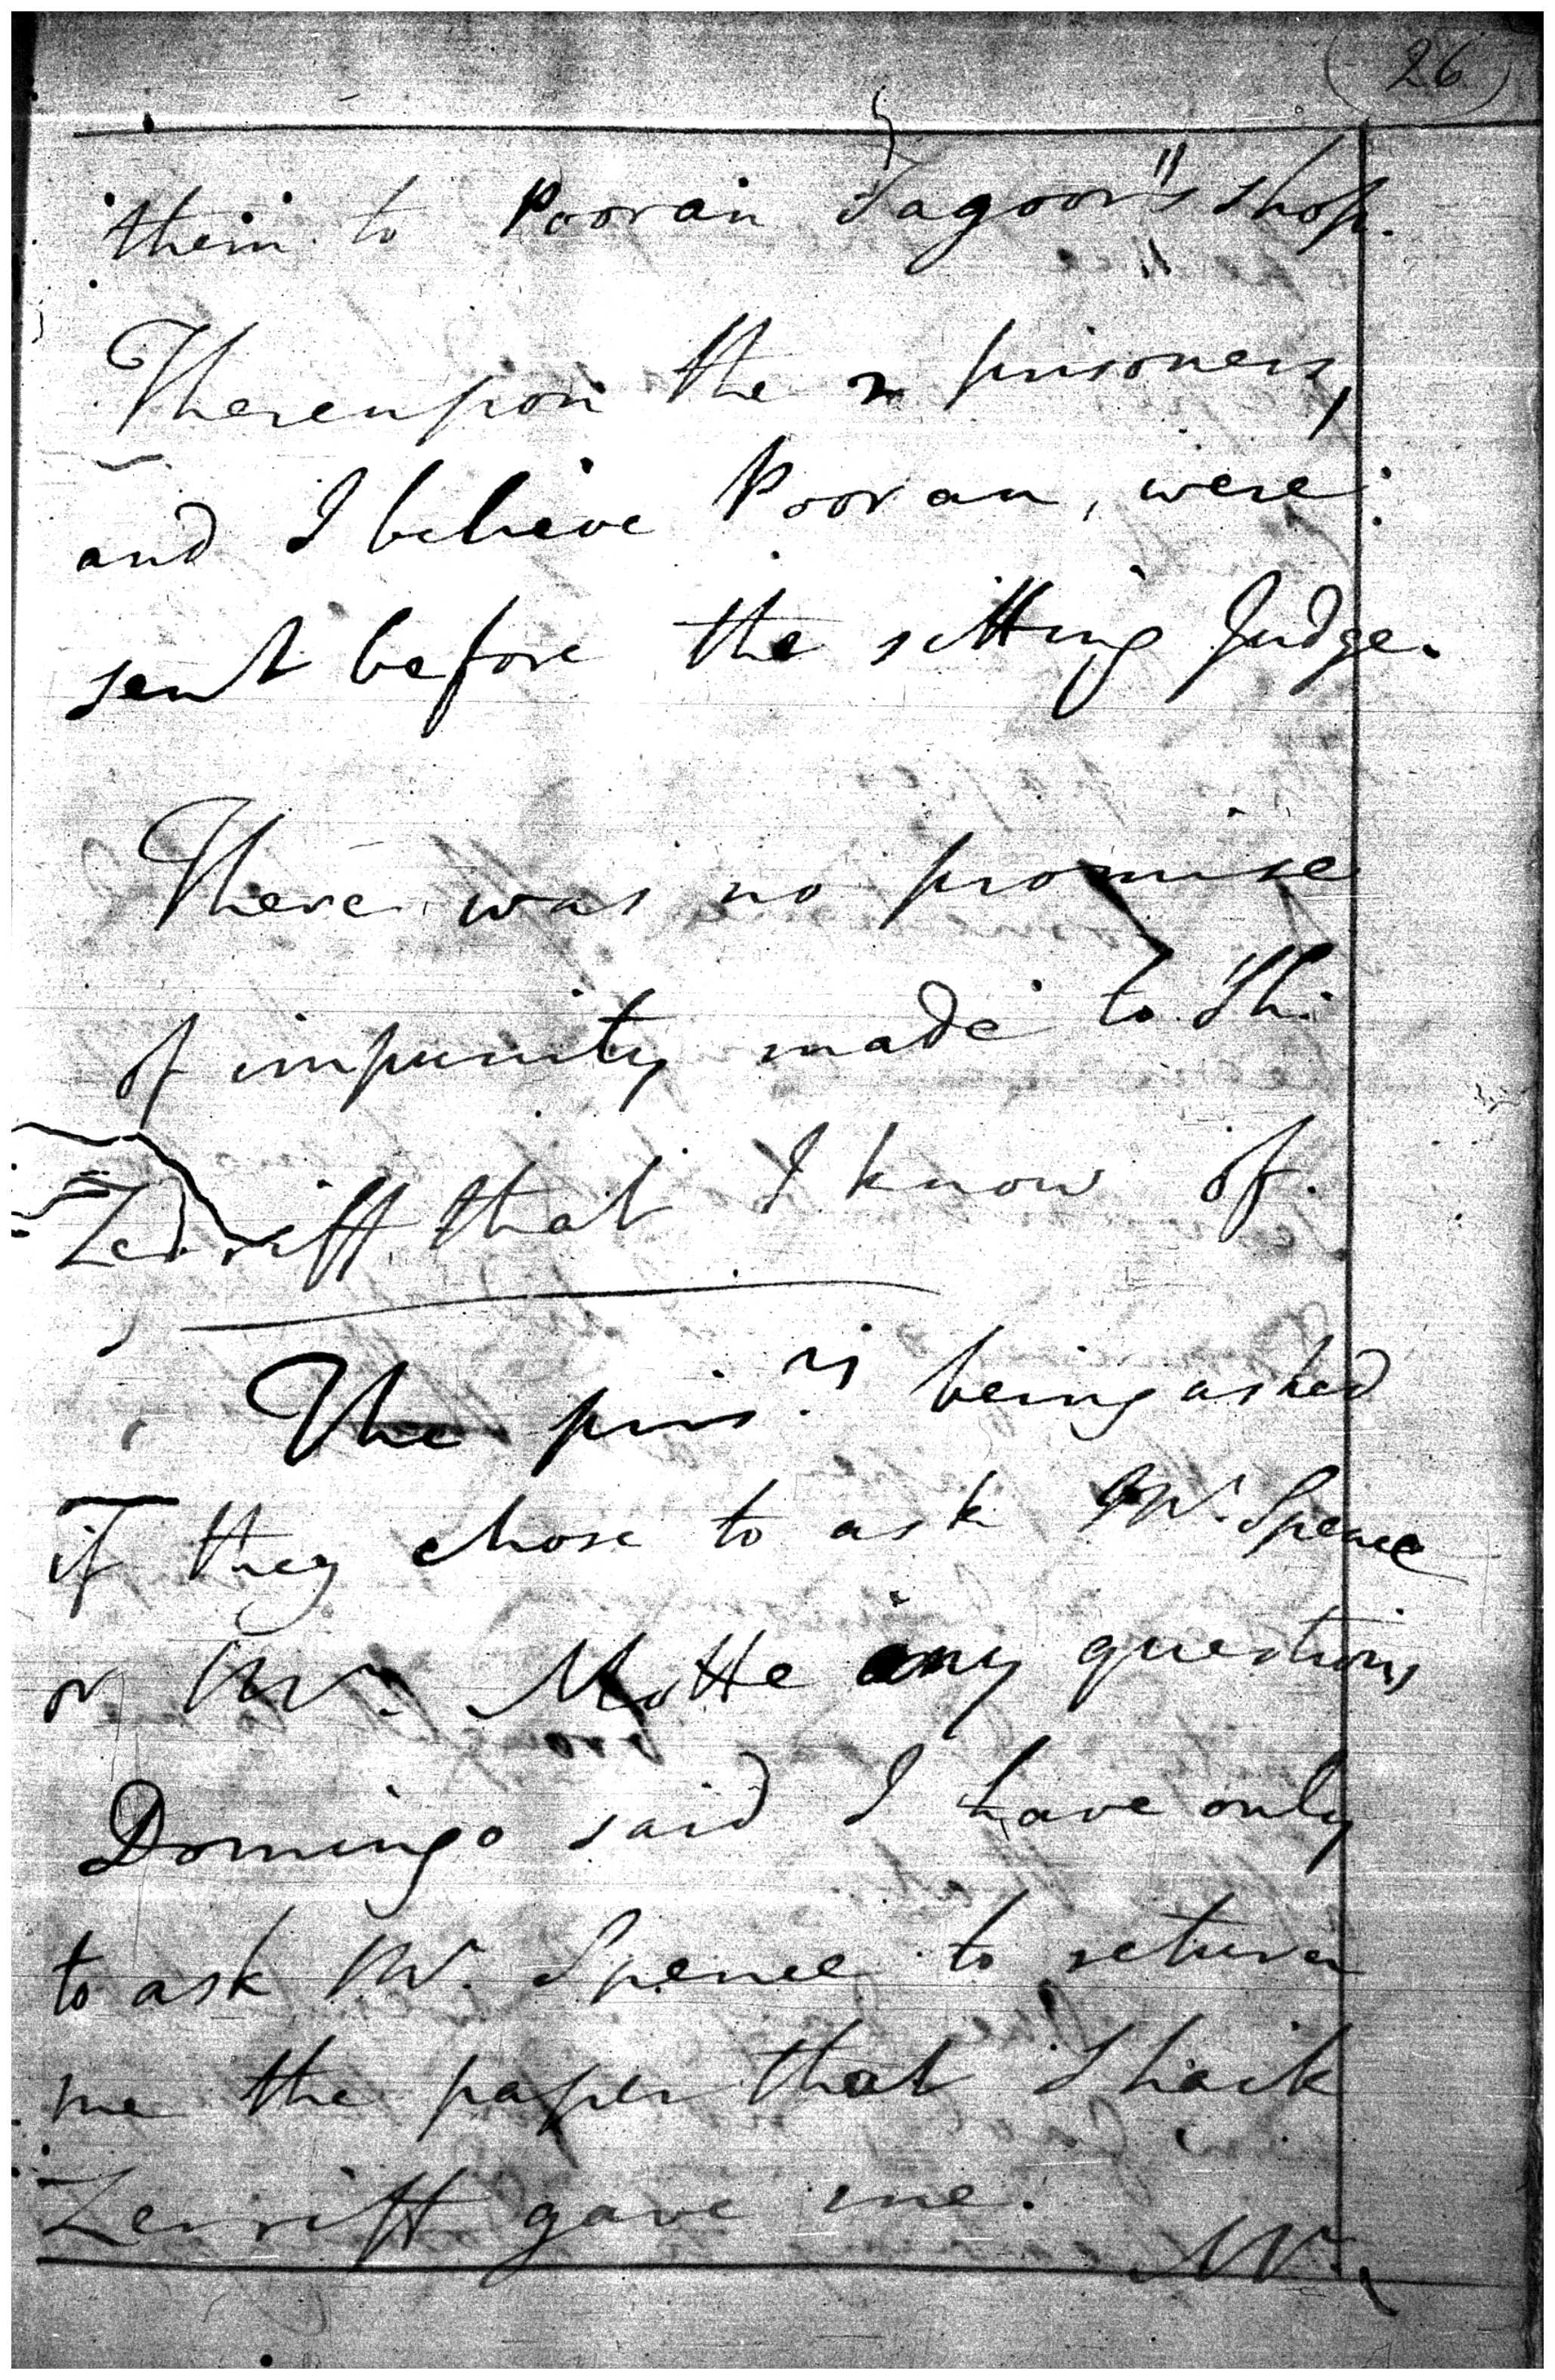 (26)
them to Pooran Tagoor"s shop.
Thereupon the 2 prisoners,
and I believe Pooran, were
sent before the sitting Judge.
There was no promise
of impunity made to Sh:
Zerriff that I know of.
The pris.rs being asked
if they chose to ask Mr. Spence
or Mr. Motte any questions
Domingo said I have only
to ask Mr. Spence to return
me the paper that Shaik
Zerriff gave me.
Mr.